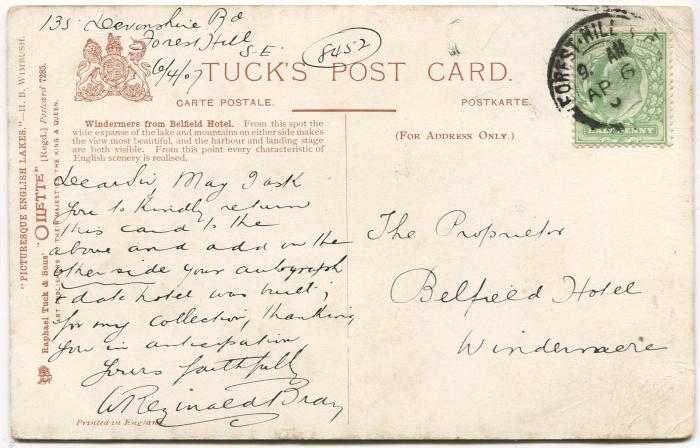 135 Devonshire Rd
Forest Hill
S-E.
6/4/07
8452
TUCK'S POST CARD.
CARTE POSTALE.
POSTKARTE.
(FOR ADDRESS ONLY.)
Windermere from Belfield Hotel. From this spot the
wide expanse of the lake and mountains on either side makes
the view most beautiful, and the harbour and landing stage
are both visible. From this point every characteristic of
English scenery is realised.
Dear Sir, May I ask
you to kindly return
this card to the
above and add on the
other side your autograph
& date hotel was built;
for my collection, thanking
you in anticipation
Yours faithfully
W Reginald Bray
Printed in England
The Proprietor
Belfield Hotel
Windermere
"PICTURESQUE ENGLISH LAKES."—H. B. WIMBUSH.
Raphael Tuck & Sons' "OILETTE" [Regd.] Postcard 7285.
ART PUBLISHERS TO THEIR MAJESTIES THE KING & QUEEN.
FOREST-HILL
9. AM
AP 6
HALFPENNY